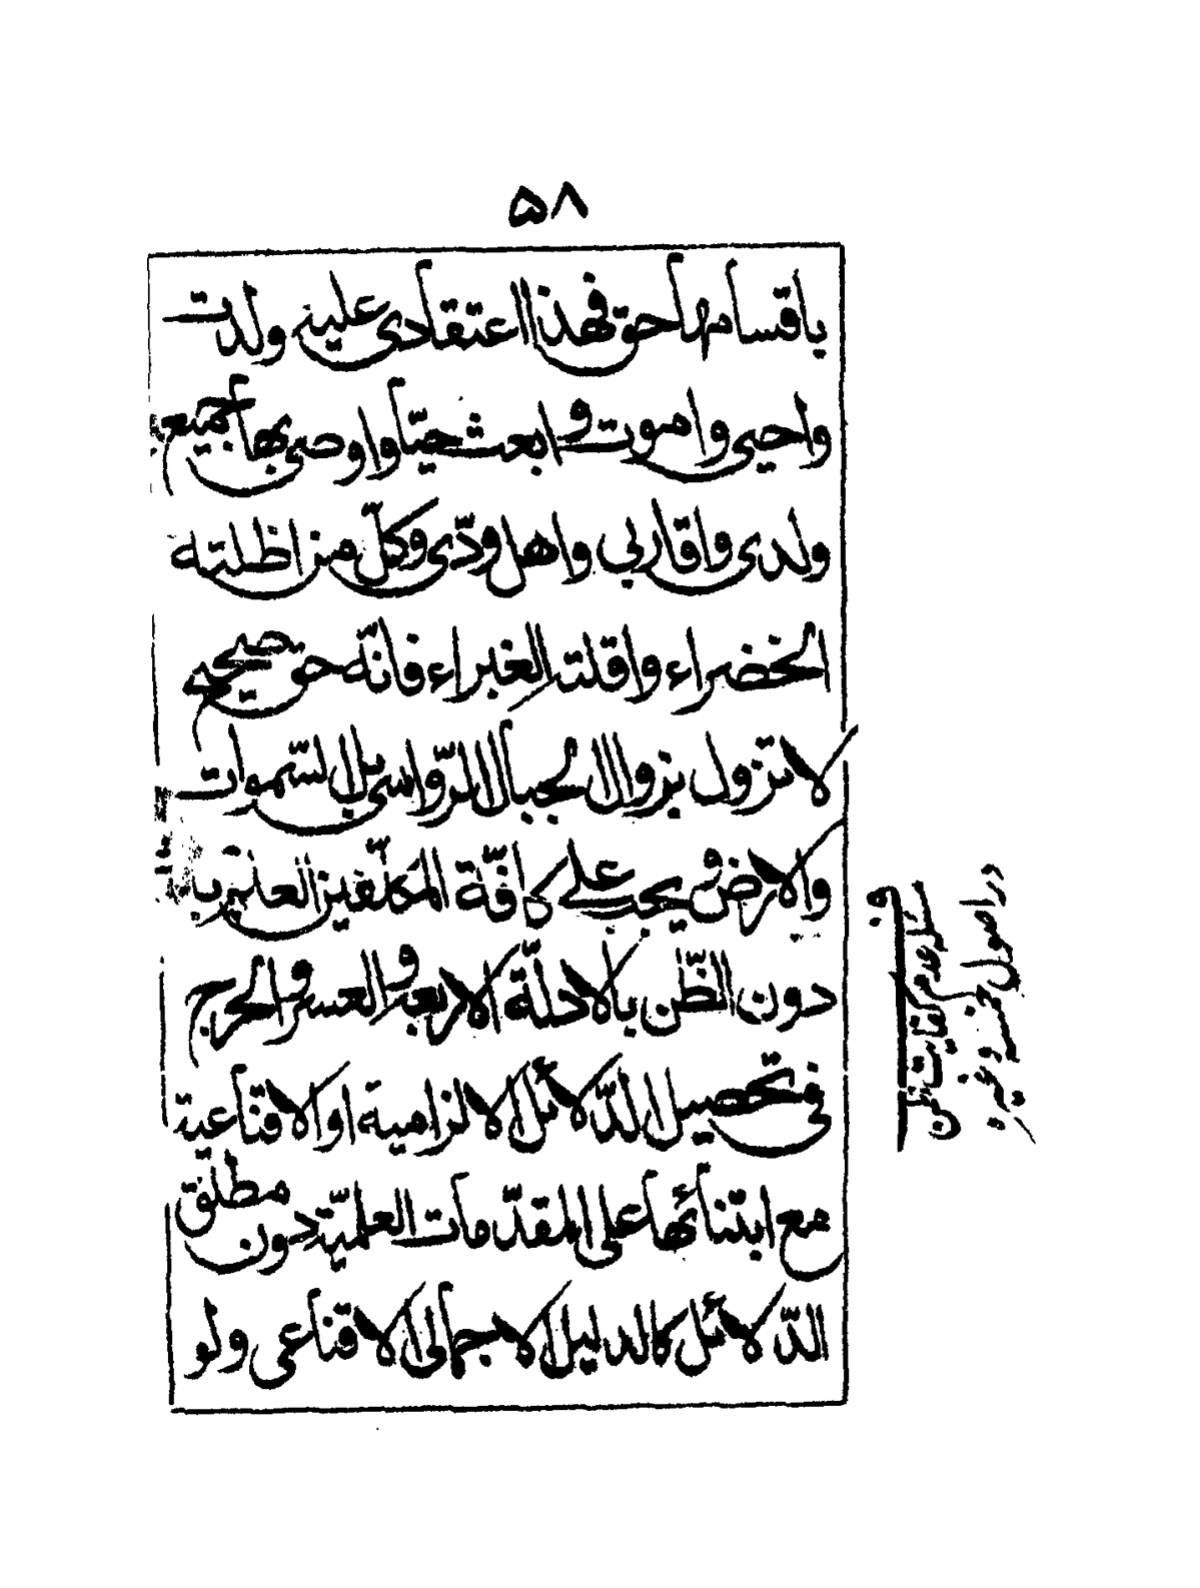 ۵۸
باقسامها حق فهذا اعتقادی علیه ولدت
واحیی واموت و ابعث حیّاً واوصی بها جمیع
ولدی واقاربی واهل ودّی وکلّ من اظلته
الخضراء واقلته الغبراء فانّه حق صحیح
لا تزول بزوال الجبال الرّواسی بل السّموات
والارض و یجب علی کافّة المکلّفین العلم بها
دون الظّن بالادلّة الاربعة والعسر والحرج
فی تحصیل الدّلائل الالزامیة او الاقناعیة
مع ابتنائها علی المقدّمات العلمیّة دون مطلق
الدّلائل کالدلیل الاجمالی الاقناعی ولو
مسئله عدم کفایت ظن
در اصول خمسه وغیره